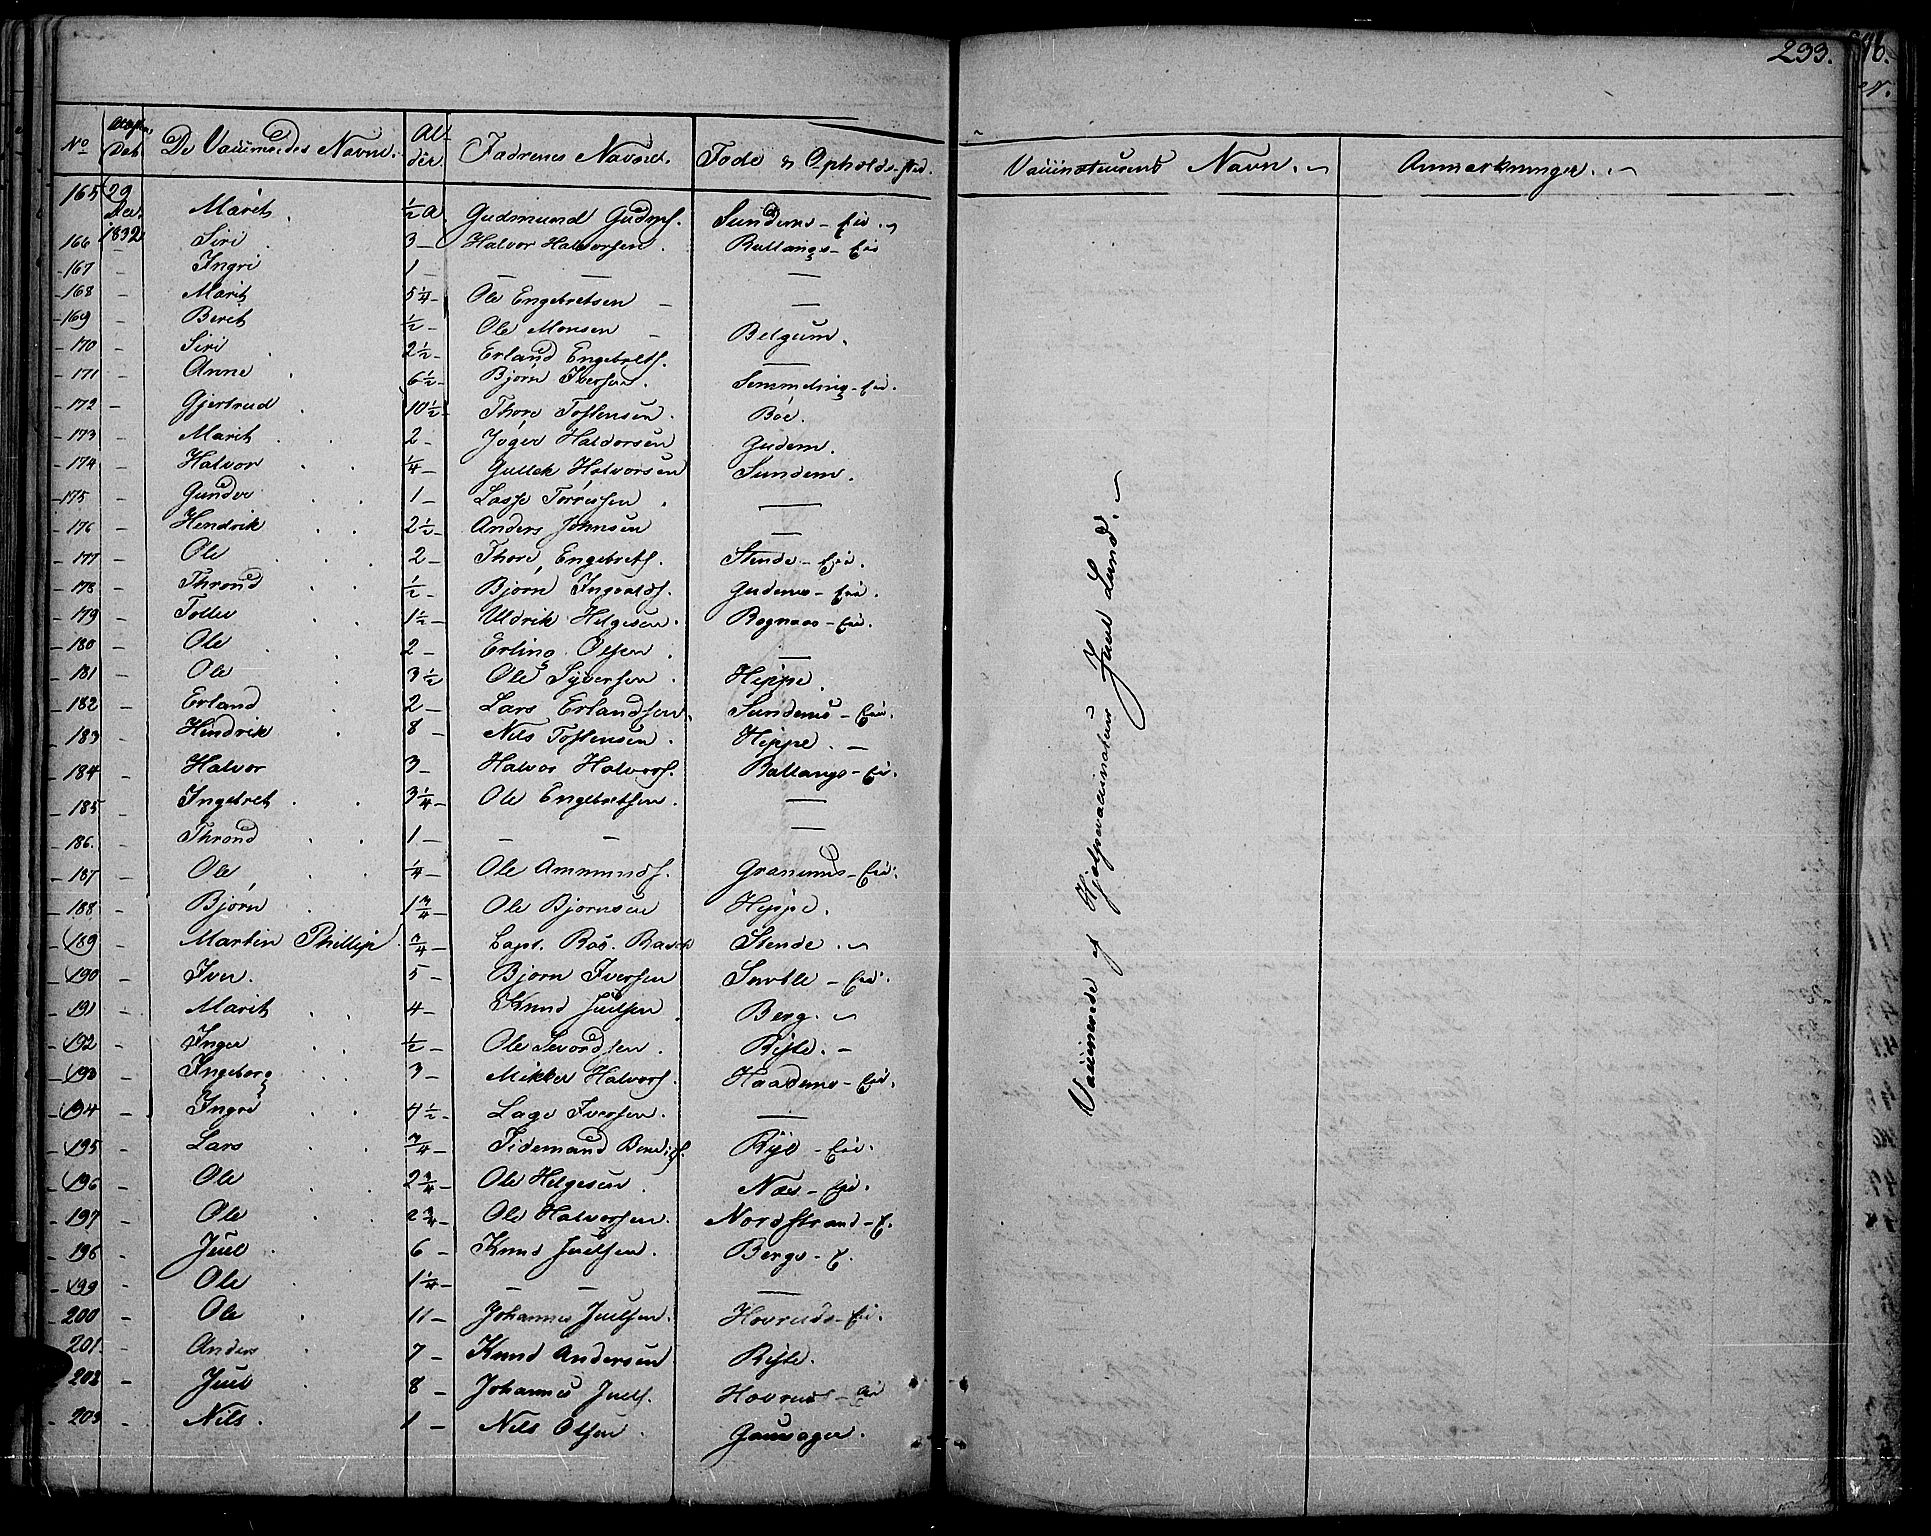 233.
No Attestens Dat. De Vaccineredes Navne. Alder. Fædrenes Navne. Føde og Opholds-sted. Vaccinateurens Navn. Anmærkninger.
165 29 Dec. 1832 Marit ½ A Gudmund Gudms. Sundems-Eie.
166 - Siri 3 - Halvor Halvorsen. Ballangs-Eie
167 - Ingri 1 - — — —
168 - Marit 5¼ - Ole Engebretsen —
169 - Beret ½ - Ole Monsen Belgum.
170 - Siri 2½ - Erland Engebrets. —
171 - Anne 6½ - Bjørn Iversen. Semmeling-Eie.
172 - Gjertrud 10½ - Thore Tostensen. Bøe.
173 - Marit 2 - Haldorsen Gudem.
174 - Halvor ¼ - Gullek Halvorsen Sundem.
175 - Gunder 1 - Lasse —
176 - Hendrik 2½ - Anders Johnsen —
177 - Ole 2 - Thore Engebrets. Stende-Eie.
178 - Thrond ½ - Bjørn Ingvalds. Gudems-Eie.
179 - Tollev 1½ - Uldrik Helgesen. Rognaas-Eie.
180 - Ole 2 - Erling Olsen. —
181 - Ole 3½ Ole Syversen. Hippe.
182 - Erland 2 - Lars Erlandsen. Sundems-Eie.
183 - Hendrik 8 - Nils Tostensen. Hippe. —
184 - Halvor 3 - Halvor Halvors. Ballangs-Eie.
185 - Ingebret 3¼ - Ole Engebretsen. —
186. - Thrond 1 - — — —
187 - Ole ¼ - Ole Ammunds. Granums-Eie.
188 - Bjørn 1¾ - Ole Bjørnsen Hippe.
189 - Martin Phillip ¾ - Capt. Stende.
190 - Iver. 5 - Bjørn Iversen -Eie.
191 - Marit 4 - Knud Juelsen Berg.
192 - Inger ½ - Ole Sevordsen. Riste. -
193 - Ingeborg 3 - Mikkel Halvors. Haadems-Eie.
194 - Ingri 4½ - Lage Iversen. —
195 - Lars ¾ - Tidemand Rye-Eie.
196 - Ole 2¾ - Ole Helgesen. Næs-Eie.
197 - Ole 2¾ - Ole Halvorsen. Nordstrand-E.
198 - Juel 6 - Knud Juelsen. Bergs-E.
199 - Ole 1¼ - — — —
200 - Ole 11 - Johannes Juelsen. Hovruds-Eie.
201. - Anders 7 - Knud Andersen Riste.
202 - Juel 8 - Johannes Juels. Hovruds-Eie
203 - Nils. 1 - Nils Olsen. Gausager.
Vaccinerede af Hjelpevaccinateur Juul Lund.